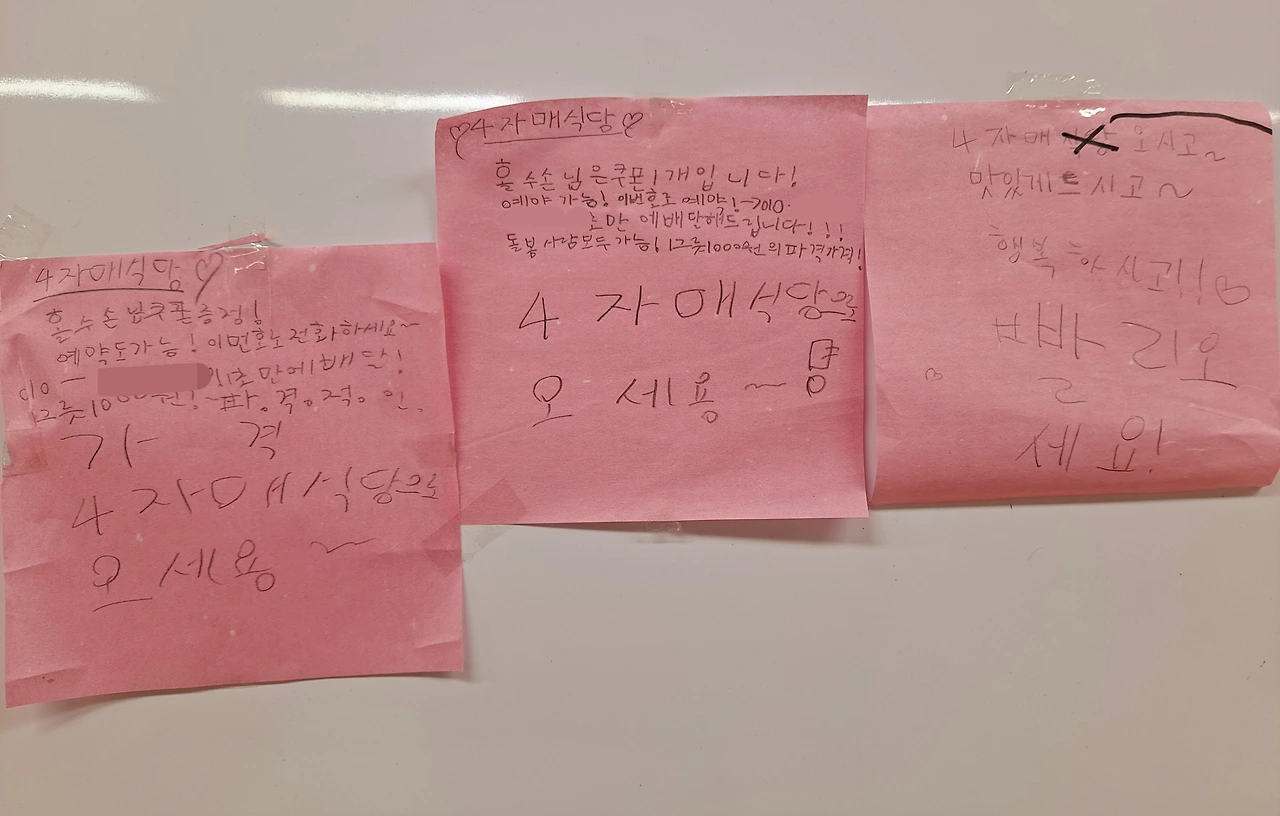 4자매식당♡
홀수손님쿠폰증정!
예약도가능! 이번호로전화하세요~
010 - 1초만에배달!
1그릇1000원!~파.격.적.인.
가격
4자매식당으로
오세용~
♡4자매식당♡
홀수손님은쿠폰1개입니다!
예약 가능! 이번호로 예약!->010.
초만에배달해드립니다!!!
돌봄사람모두가능! 1그릇1000원의파격가격!
4자매식당으로
오세용~
4자매 오시고~
맛있게드시고~
행복하시고!!♡
빨리오
세요!